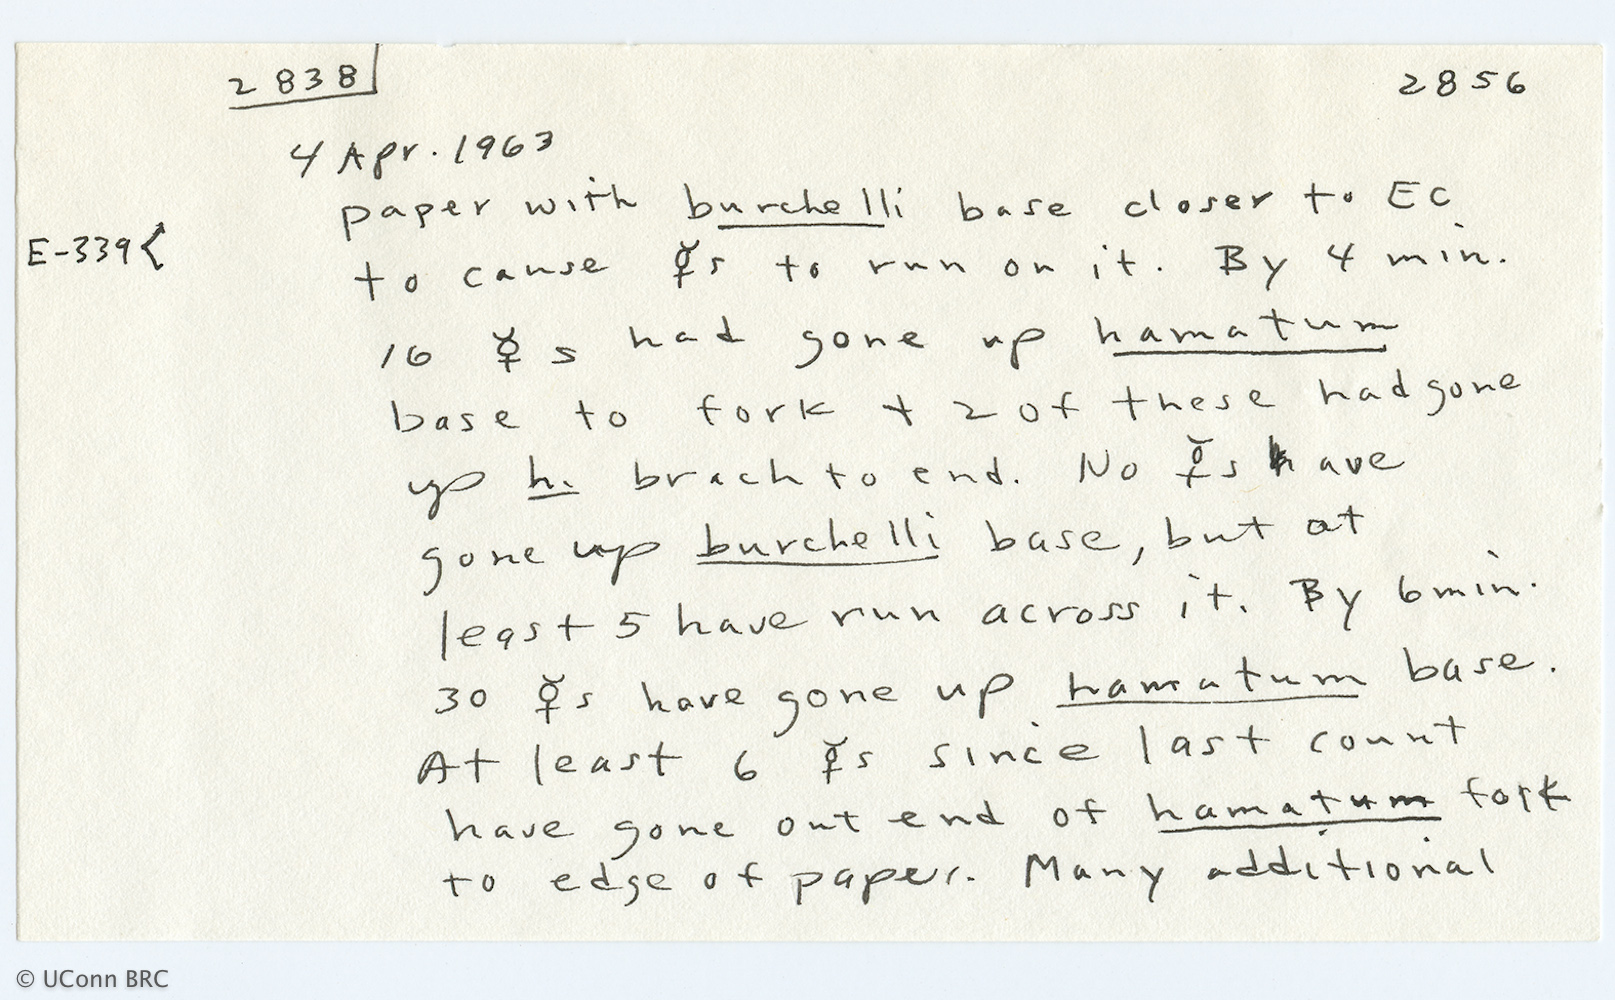 2838
2856
4 Apr. 1963
paper with burchelli base closer to EC
E-339<
to cause ☿s to run on it. By 4 min.
16 ☿s had gone up hamatum
base to fork + 2 of these had gone
up h. brach to end. No ☿s have
gone up burchelli base, but at
least 5 have run across it. By 6 min.
30 ☿s have gone up hamatum base.
At least 6 ☿s since last count
have gone out end of hamatum fork
to edge of paper. Many additional
© UConn BRC